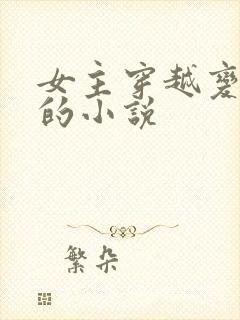 女主穿越变
的小说
繁朵